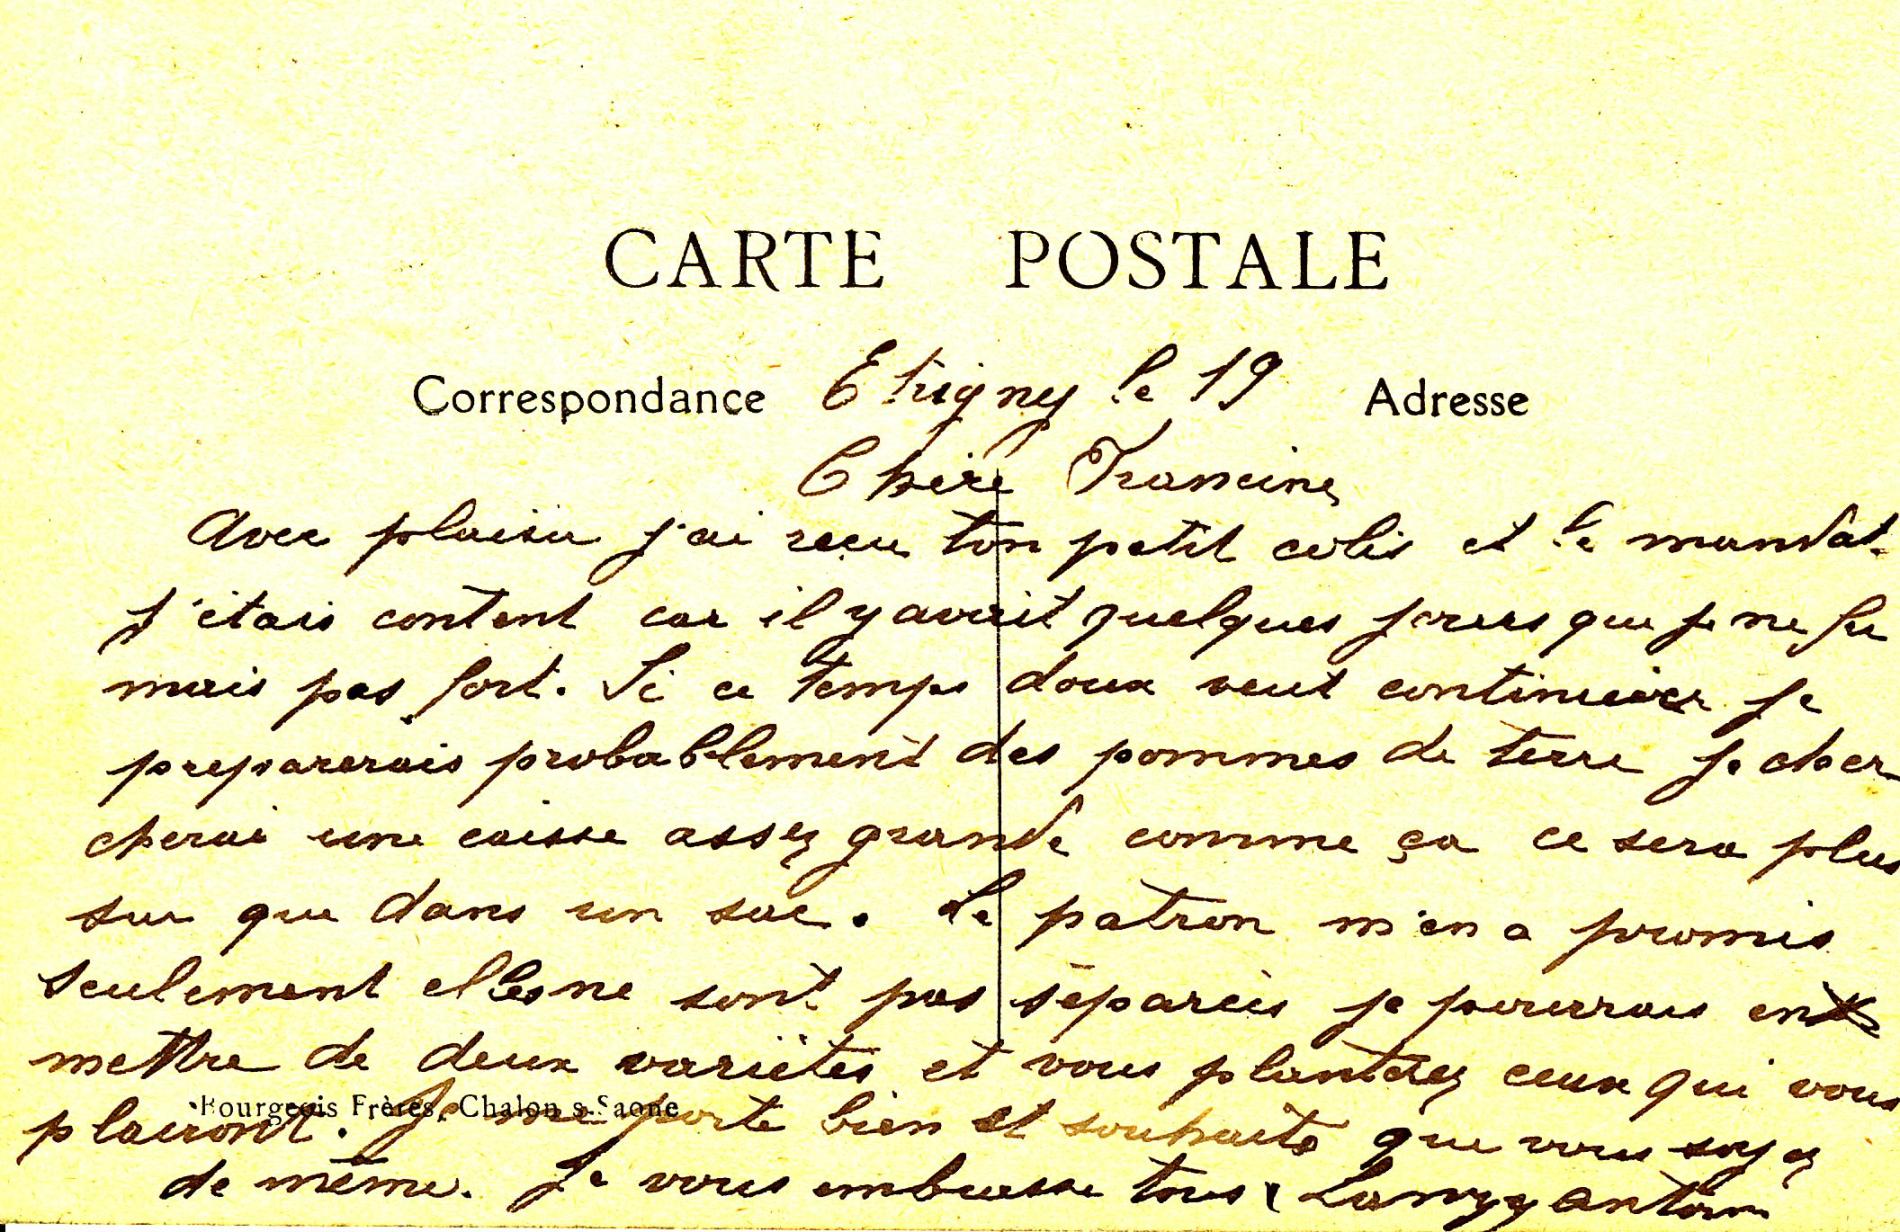 CARTE POSTALE
Correspondance Etrigny le 19 Adresse
Chère Francine
Avec plaisir j'ai reçu ton petit colis et le mandat.
j'étais content car il y avait quelques jours que je ne fu
mais pas fort. Si ce temps doux veut continuer je
preparerais probablement des pommes de terre je cher
cherai une caisse assez grande comme ça ce sera plus
sur que dans un sac. Le patron m'en a promis
seulement elles ne sont pas séparéés je pourrais en
mettre de deux variétés et vous planterez ceux qui vous
plairont. Je me porte bien et souhaite que vous soyez
Bourgeois Frères, Chalon s-Saone
de même. Je vous embrasse tous